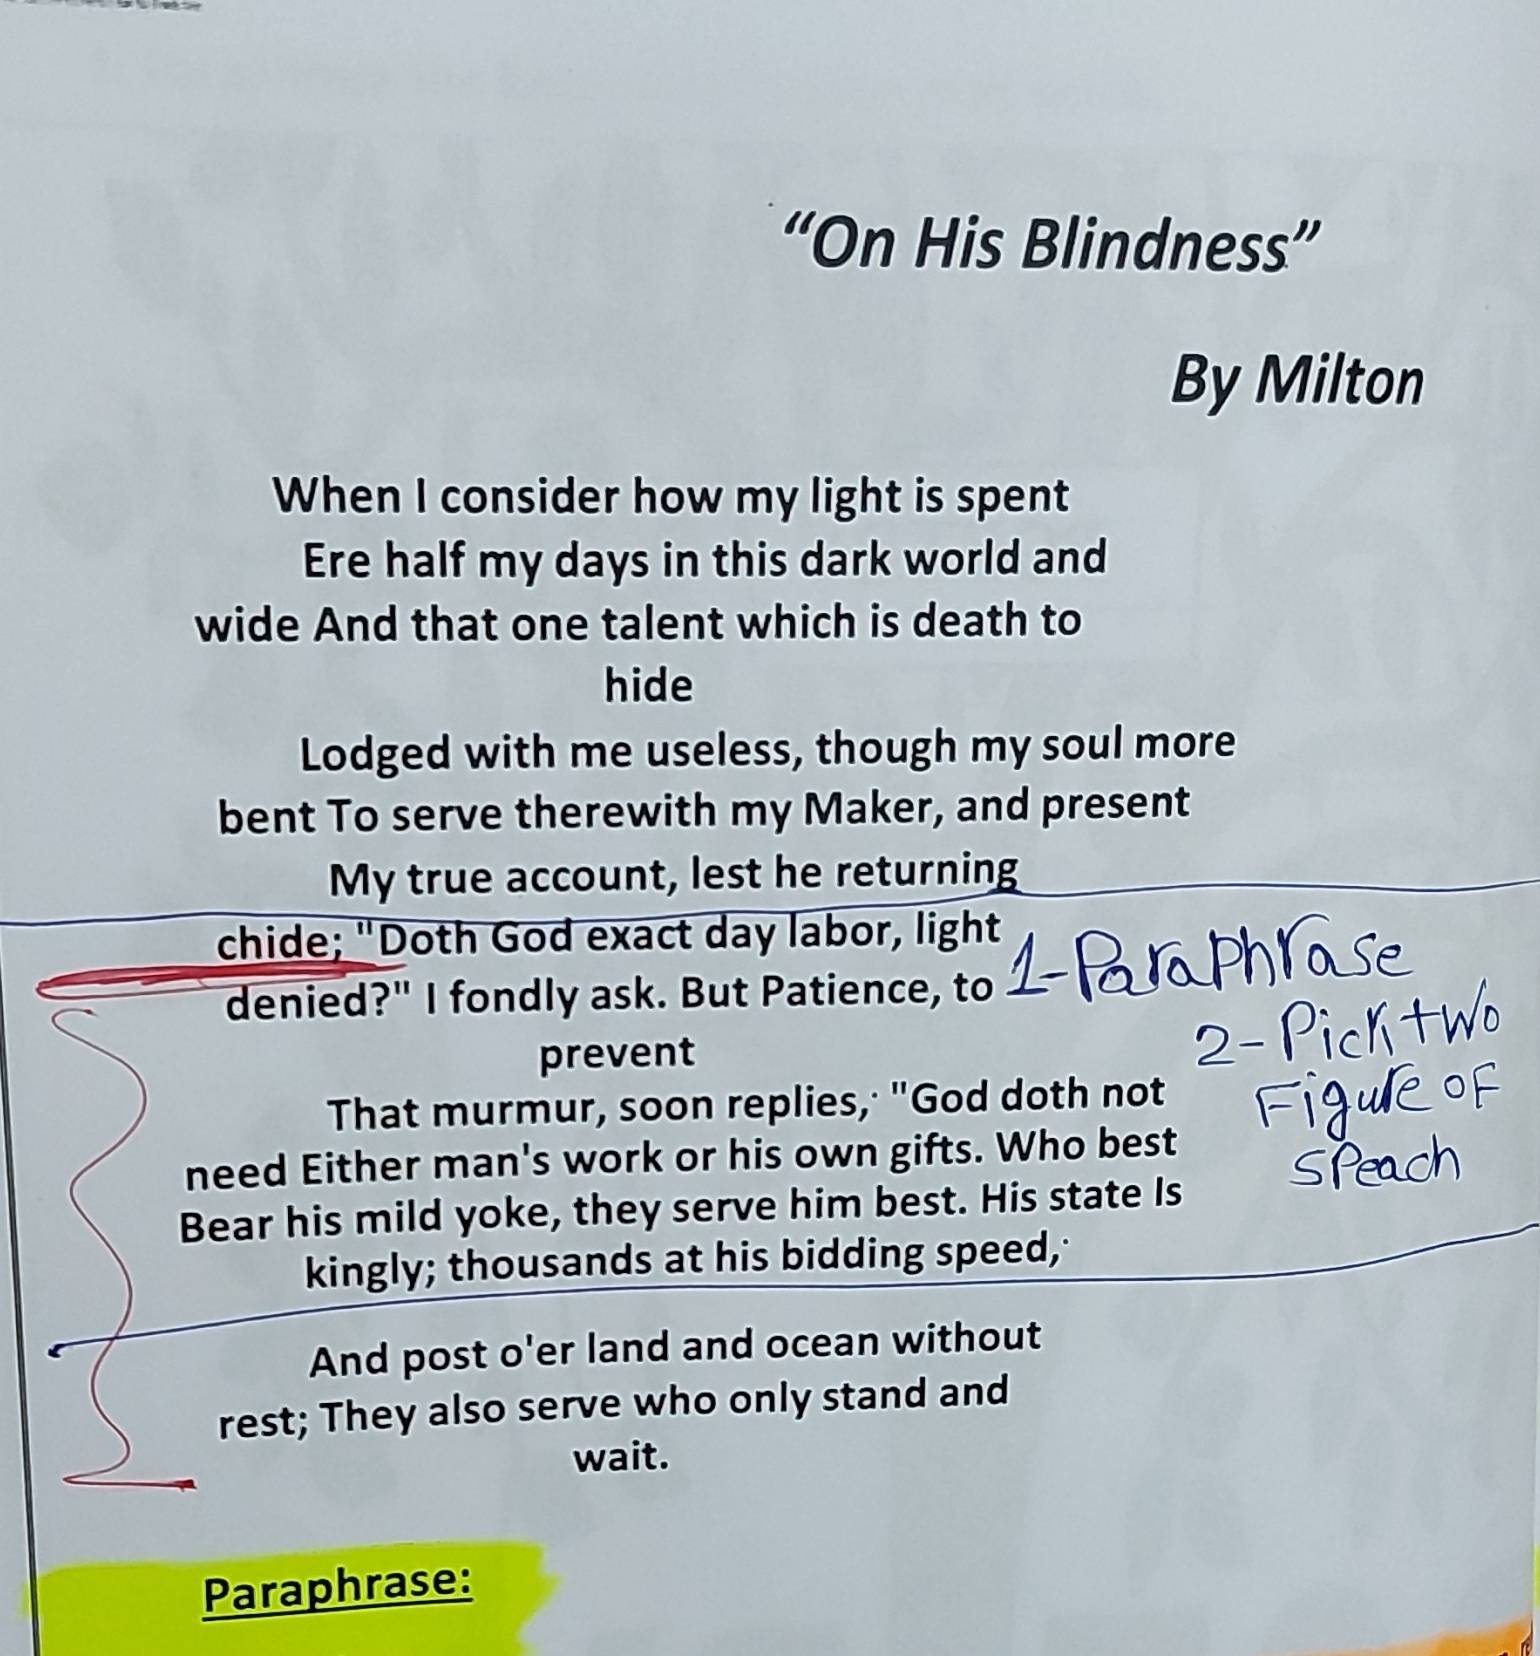 “On His Blindness”
By Milton
When I consider how my light is spent
Ere half my days in this dark world and
wide And that one talent which is death to
hide
Lodged with me useless, though my soul more
bent To serve therewith my Maker, and present
My true account, lest he returning
chide; "Doth God exact day labor, light
denied?" I fondly ask. But Patience, to
prevent
1-Paraphrase
2-Pick two
Figure of
speach
That murmur, soon replies, "God doth not
need Either man's work or his own gifts. Who best
Bear his mild yoke, they serve him best. His state Is
kingly; thousands at his bidding speed,
And post o'er land and ocean without
rest; They also serve who only stand and
wait.
Paraphrase: